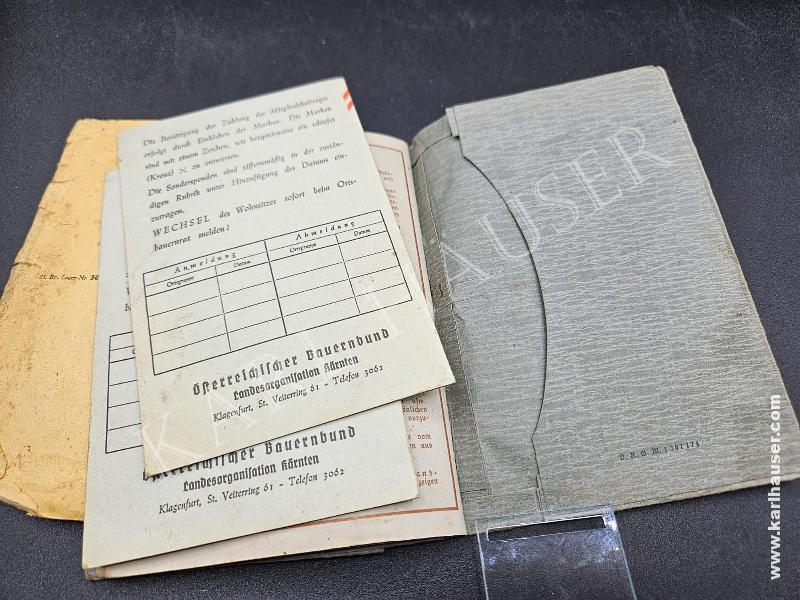 Die Bestätigung der Zahlung des Mitgliedsbeitrages
erfolgt durch Einkleben der Marken. Die Marken
sind mit einem Zeichen, wie beispielsweise ein schiefes
(Kreuz) X zu entwerten.
Die Sonderspenden sind ziffernmäßig in der zustän-
digen Rubrik unter Hinzufügung des Datums ein-
zutragen.
WECHSEL des Wohnsitzes sofort beim Orts-
bauernrat melden!
Anmeldung Abmeldung
Ortsgruppe Datum Ortsgruppe Datum
Österreichischer Bauernbund
Landesorganisation Kärnten
Klagenfurt, St. Veiterring 61 – Telefon 3062
Österreichischer Bauernbund
Landesorganisation Kärnten
Klagenfurt, St. Veiterring 61 – Telefon 3062
Lager-Nr. 30
vom
aus
zeigen
D.R.G.M.
KARL HAUSER
www.karlhauser.com